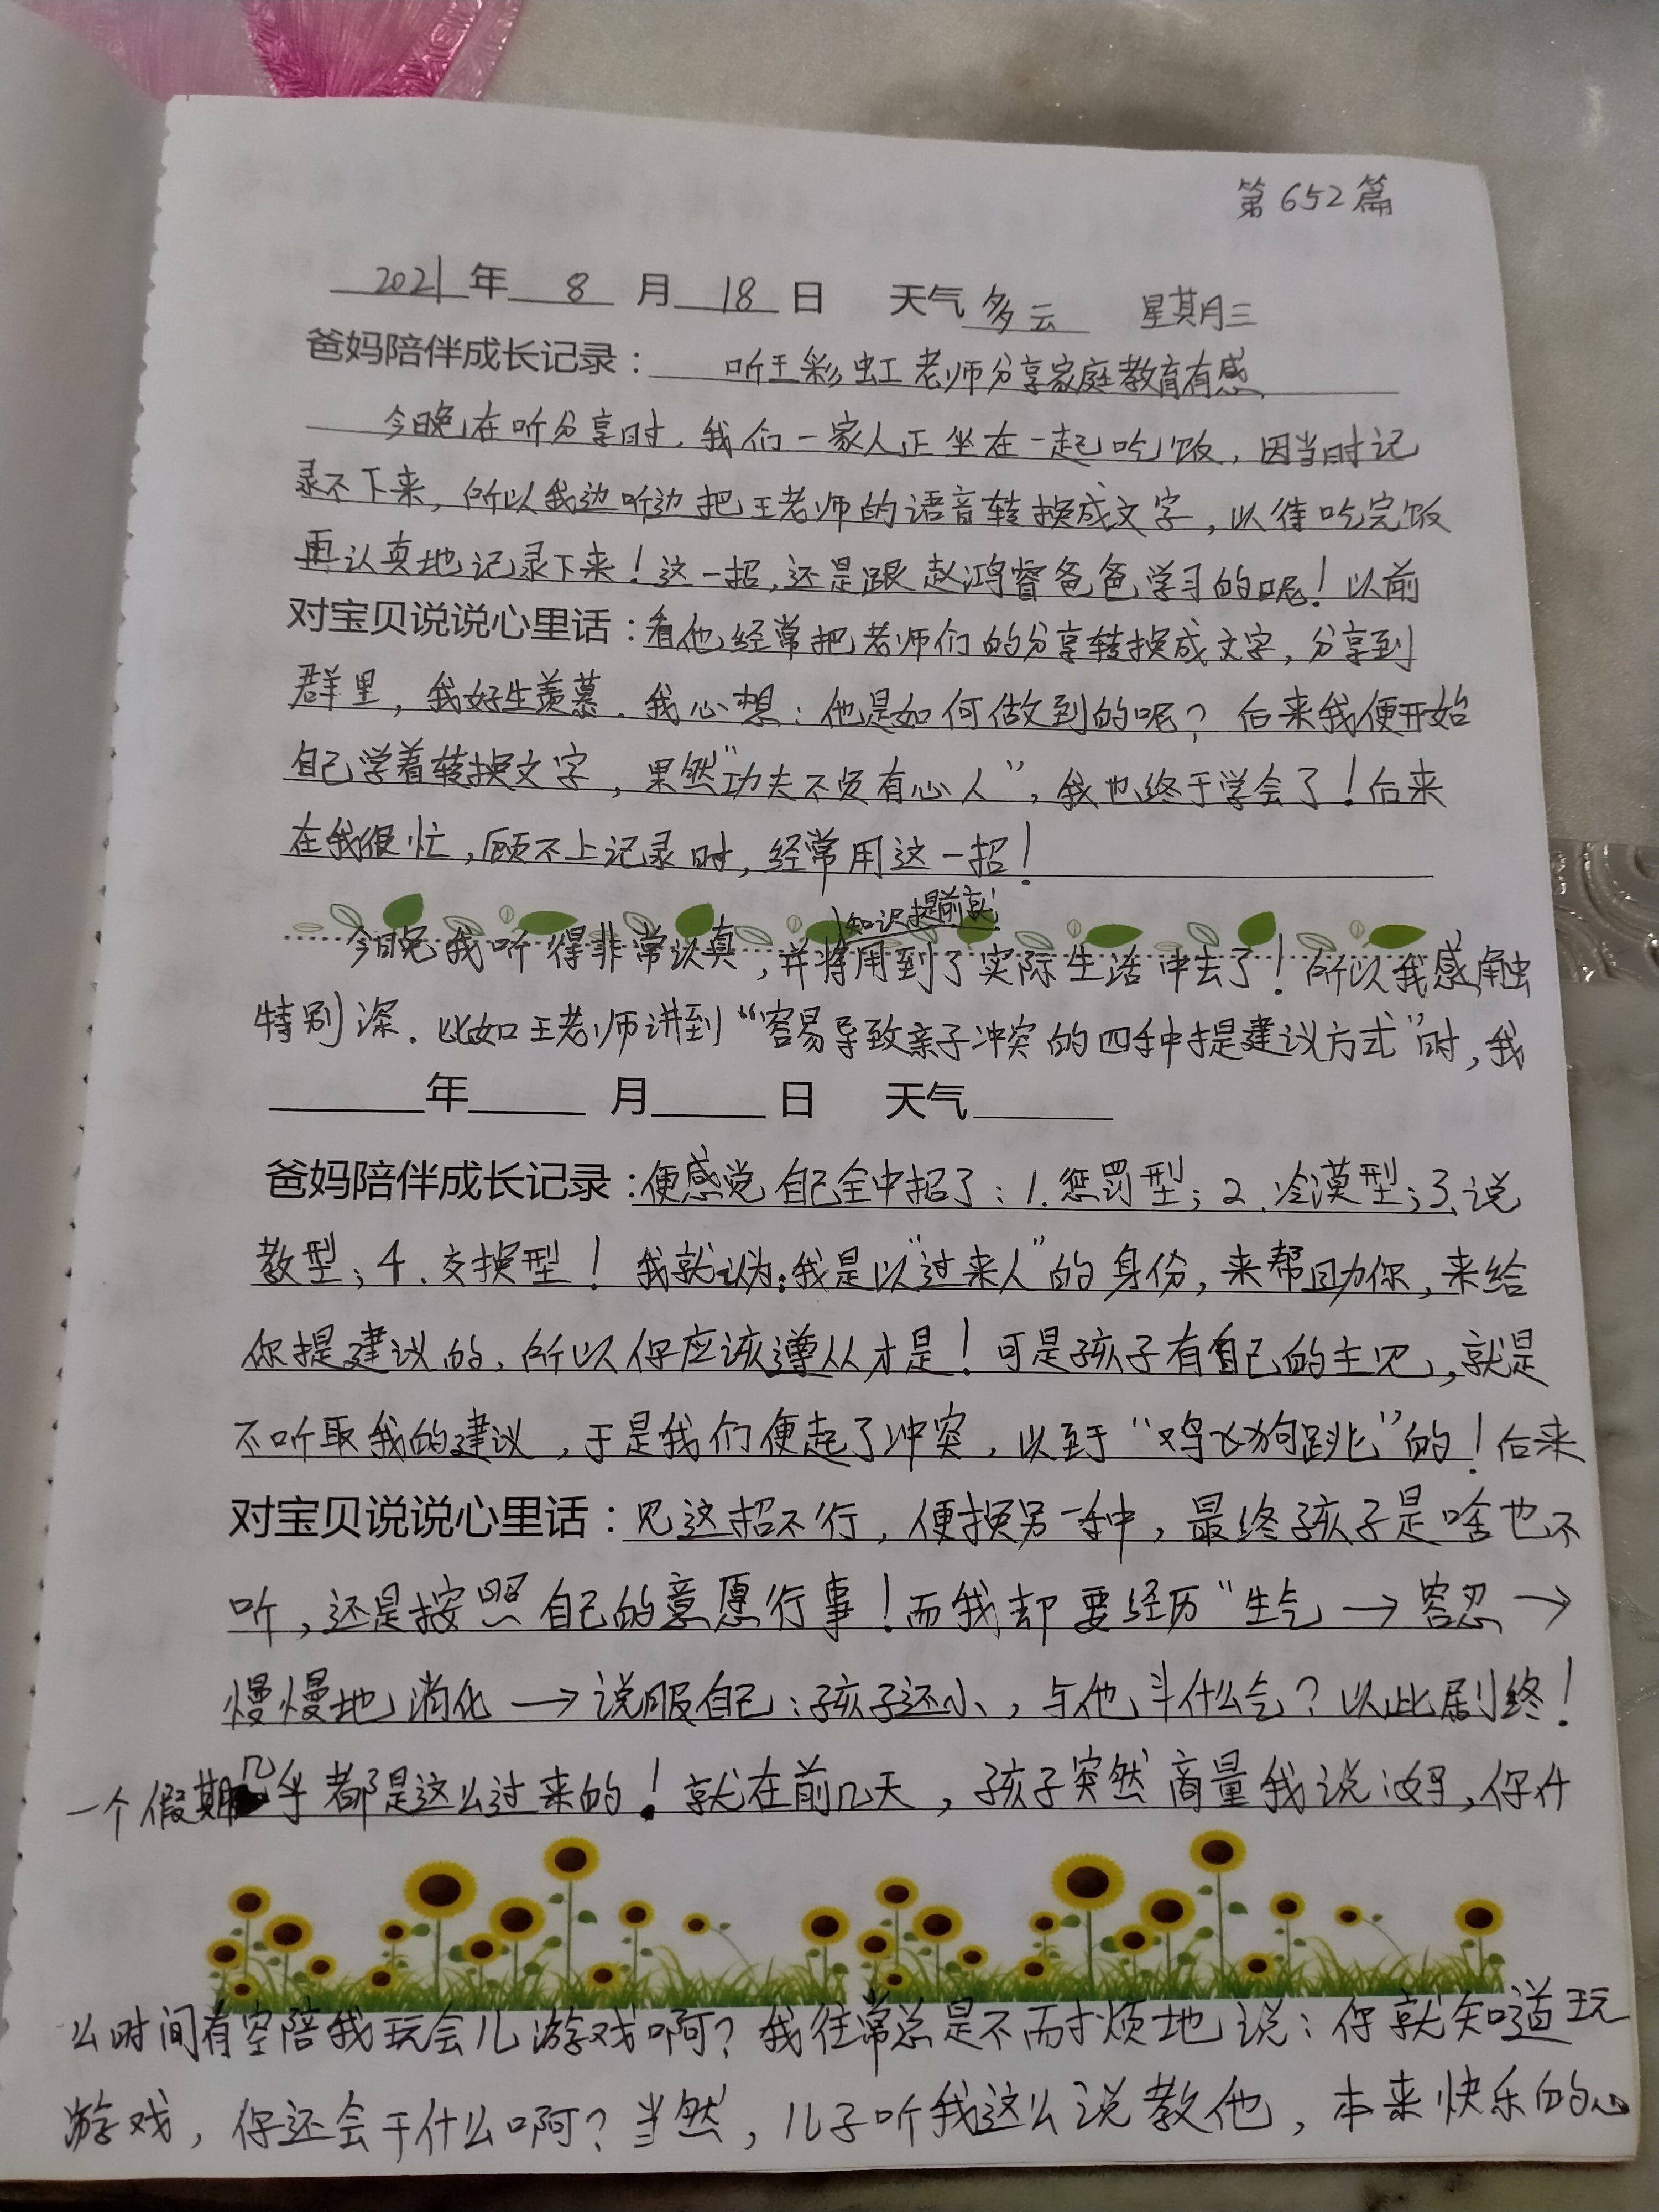 第652篇
2021年 8 月 18 日 天气 多云 星期三
爸妈陪伴成长记录: 听王彩虹老师分享家庭教育有感
今晚在听分享时,我们一家人正坐在一起吃饭,因当时记
录不下来,所以我边听边把王老师的语音转换成文字,以待吃完饭
再认真地记录下来!这一招,还是跟赵鸿睿爸爸学习的呢!以前
对宝贝说说心里话:看他经常把老师们的分享转换成文字,分享到
群里,我好生羡慕.我心想:他是如何做到的呢?后来我便开始
自己学着转换文字,果然“功夫不负有心人”,我也终于学会了!后来
在我很忙,顾不上记录时,经常用这一招!
知识提前就
今晚我听得非常认真,并将用到了实际生活中去了!所以我感触
特别深.比如王老师讲到“容易导致亲子冲突的四种提建议方式”时,我
年 月 日 天气
爸妈陪伴成长记录:便感觉自己全中招了:1.惩罚型;2.冷漠型;3.说
教型;4.交换型!我就认为:我是以“过来人”的身份,来帮助你,来给
你提建议的,所以你应该遵从才是!可是孩子有自己的主见,就是
不听取我的建议,于是我们便起了冲突,以至于“鸡飞狗跳”的!后来
对宝贝说说心里话:见这招不行,便换另一种,最终孩子是啥也不
听,还是按照自己的意愿行事!而我却要经历“生气→容忍→
慢慢地消化→说服自己:孩子还小,与他斗什么气?以此剧终!
一个假期几乎都是这么过来的!就在前几天,孩子突然商量我说:妈,你什
么时间有空陪我玩会儿游戏啊?我往常总是不耐烦地说:你就知道玩
游戏,你还会干什么啊?当然,儿子听我这么说教他,本来快乐的心